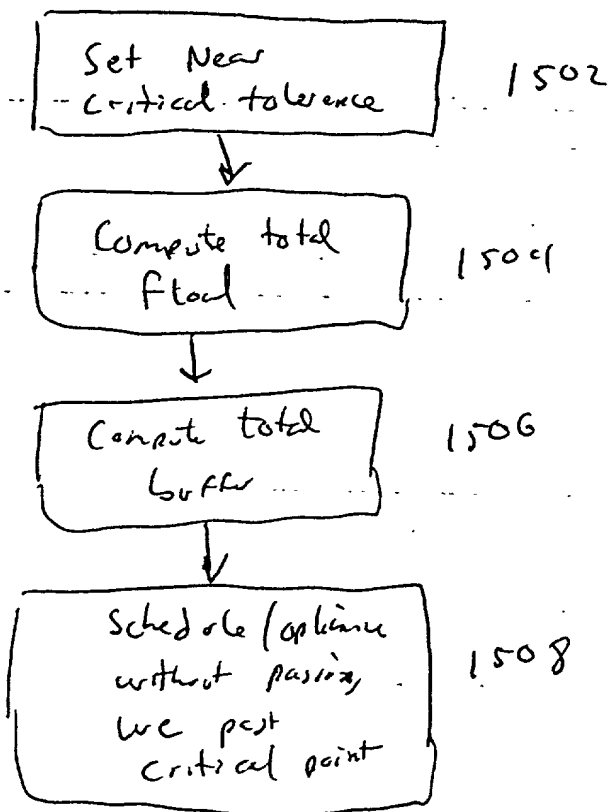 Set Near
critical tolerence
1502
Compute total
float
1504
Compute total
buffer
1506
Schedule/optimize
without passing
past
critical point
1508